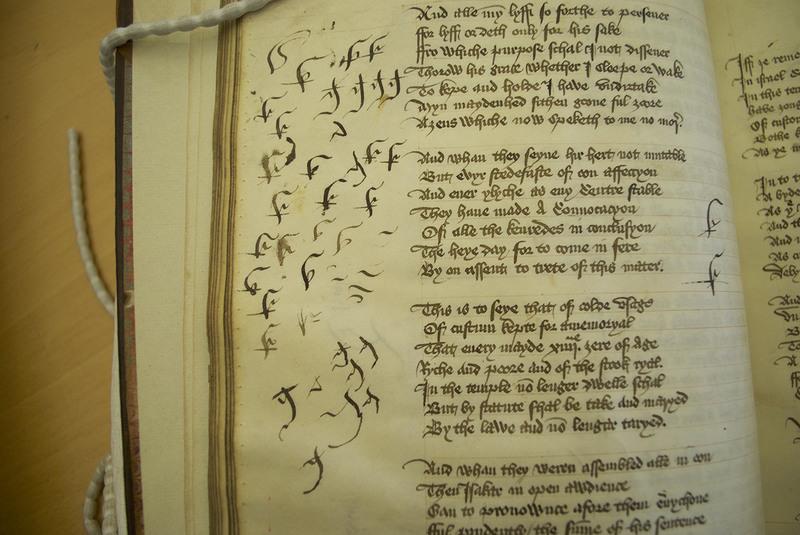 And alle my lyffe so forthe to persever
ffor lyff or deth only for his sake
ffro whiche purpose schal I not dissever
Thorow his grace whether I sleepe or wake
To kepe and holde I have vndirtake
Myn maydenhed sithen gone ful zore
Azens whiche now speketh to me no mor
And whan they seyne hir hert not mutable
But evyr stedefaste of on affeccyon
And ever ylyche as eny Centre stable
They haue made A Conuocacyon
Of alle the kynredes in conclusyon
The heye day for to come in fere
By on assent to trete of this mater.
This is to seye that of olde vsage
Of custum kepte for a memoryal
That every mayde xiiii. zere of age
Ryche and poore and of the stook ryal.
In the temple no lenger dwelle schal
But by statute shal be take and maryed
By the lawe and no lengar taryed.
And whan they weren assembled alle in con
Then Isakar in open awdience
Gan to pronownce afore them euychone
fful prudently the summe of his sentence
Iff ze reme
In israel
In this te
haue zong
Of custom
Bothe
As ze
In to t
A byde
As
And th
And
As
And